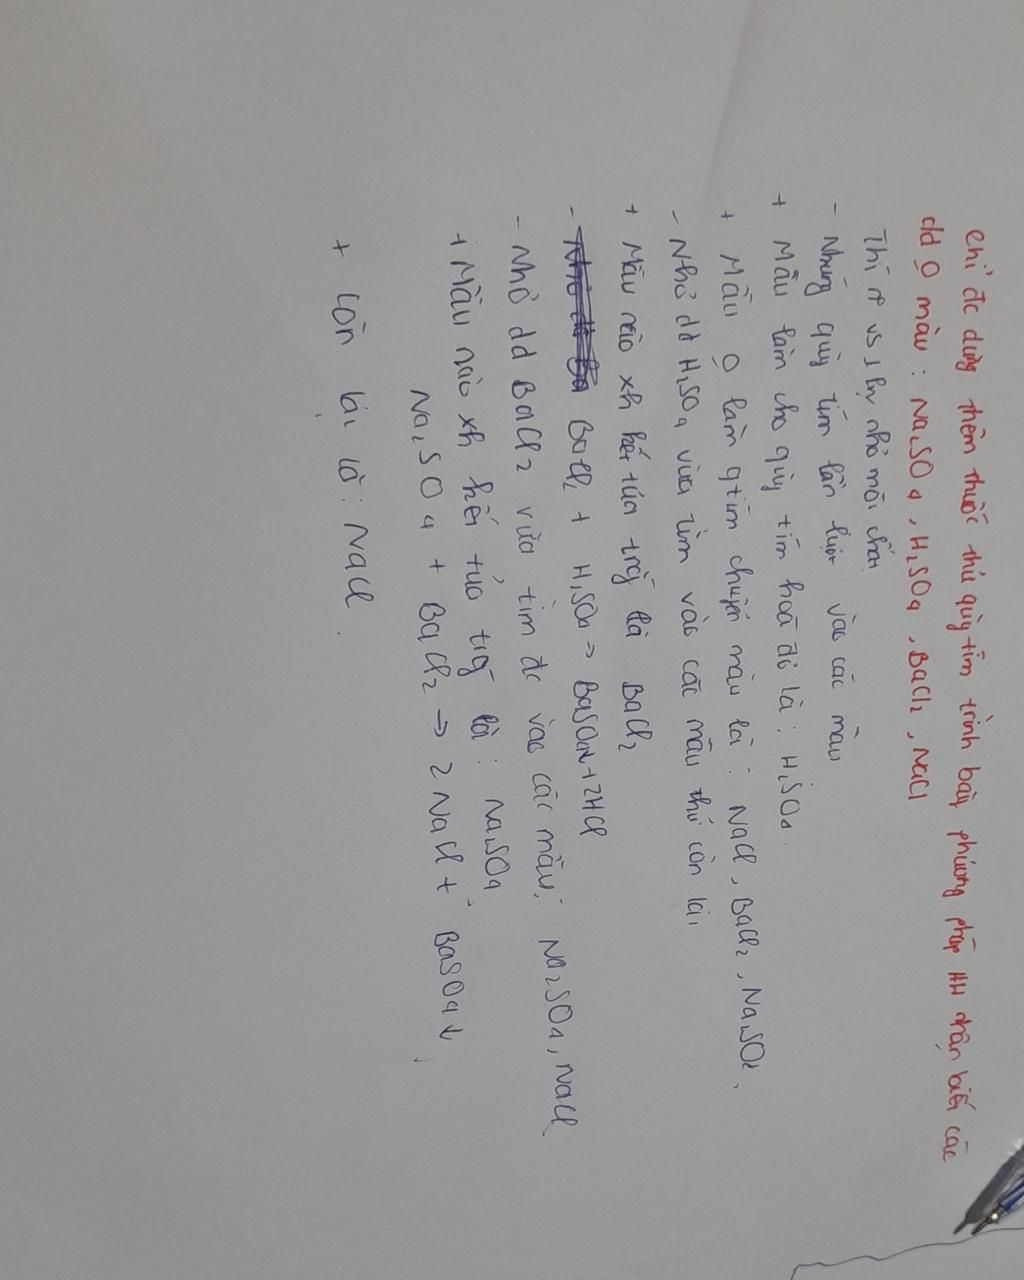 chỉ đc dùng thêm thuốc thử quỳ tím trình bày phương pháp HH nhận biết các
dd 0 màu : Na2SO4, H2SO4, BaCl2, NaCl
Thí n vs 1 lượng nhỏ mỗi chất
- Nhúng quỳ tím lần lượt vào các mẫu
+ Mẫu làm cho quỳ tím hoá đỏ là : H2SO4.
+ Mẫu 0 làm qtím chuyển màu là : NaCl, BaCl2, Na2SO4.
- Nhỏ dd H2SO4 vừa tìm vào các mẫu thử còn lại.
+ Mẫu nào xh kết tủa trắg là BaCl2
- BaCl2 + H2SO4 → BaSO4↓ + 2HCl
- Nhỏ dd BaCl2 vừa tìm đc vào các mẫu: Na2SO4, NaCl
+ Mẫu nào xh kết tủa trg là : Na2SO4
Na2SO4 + BaCl2 → 2NaCl + BaSO4↓
+ Còn lại là : NaCl.